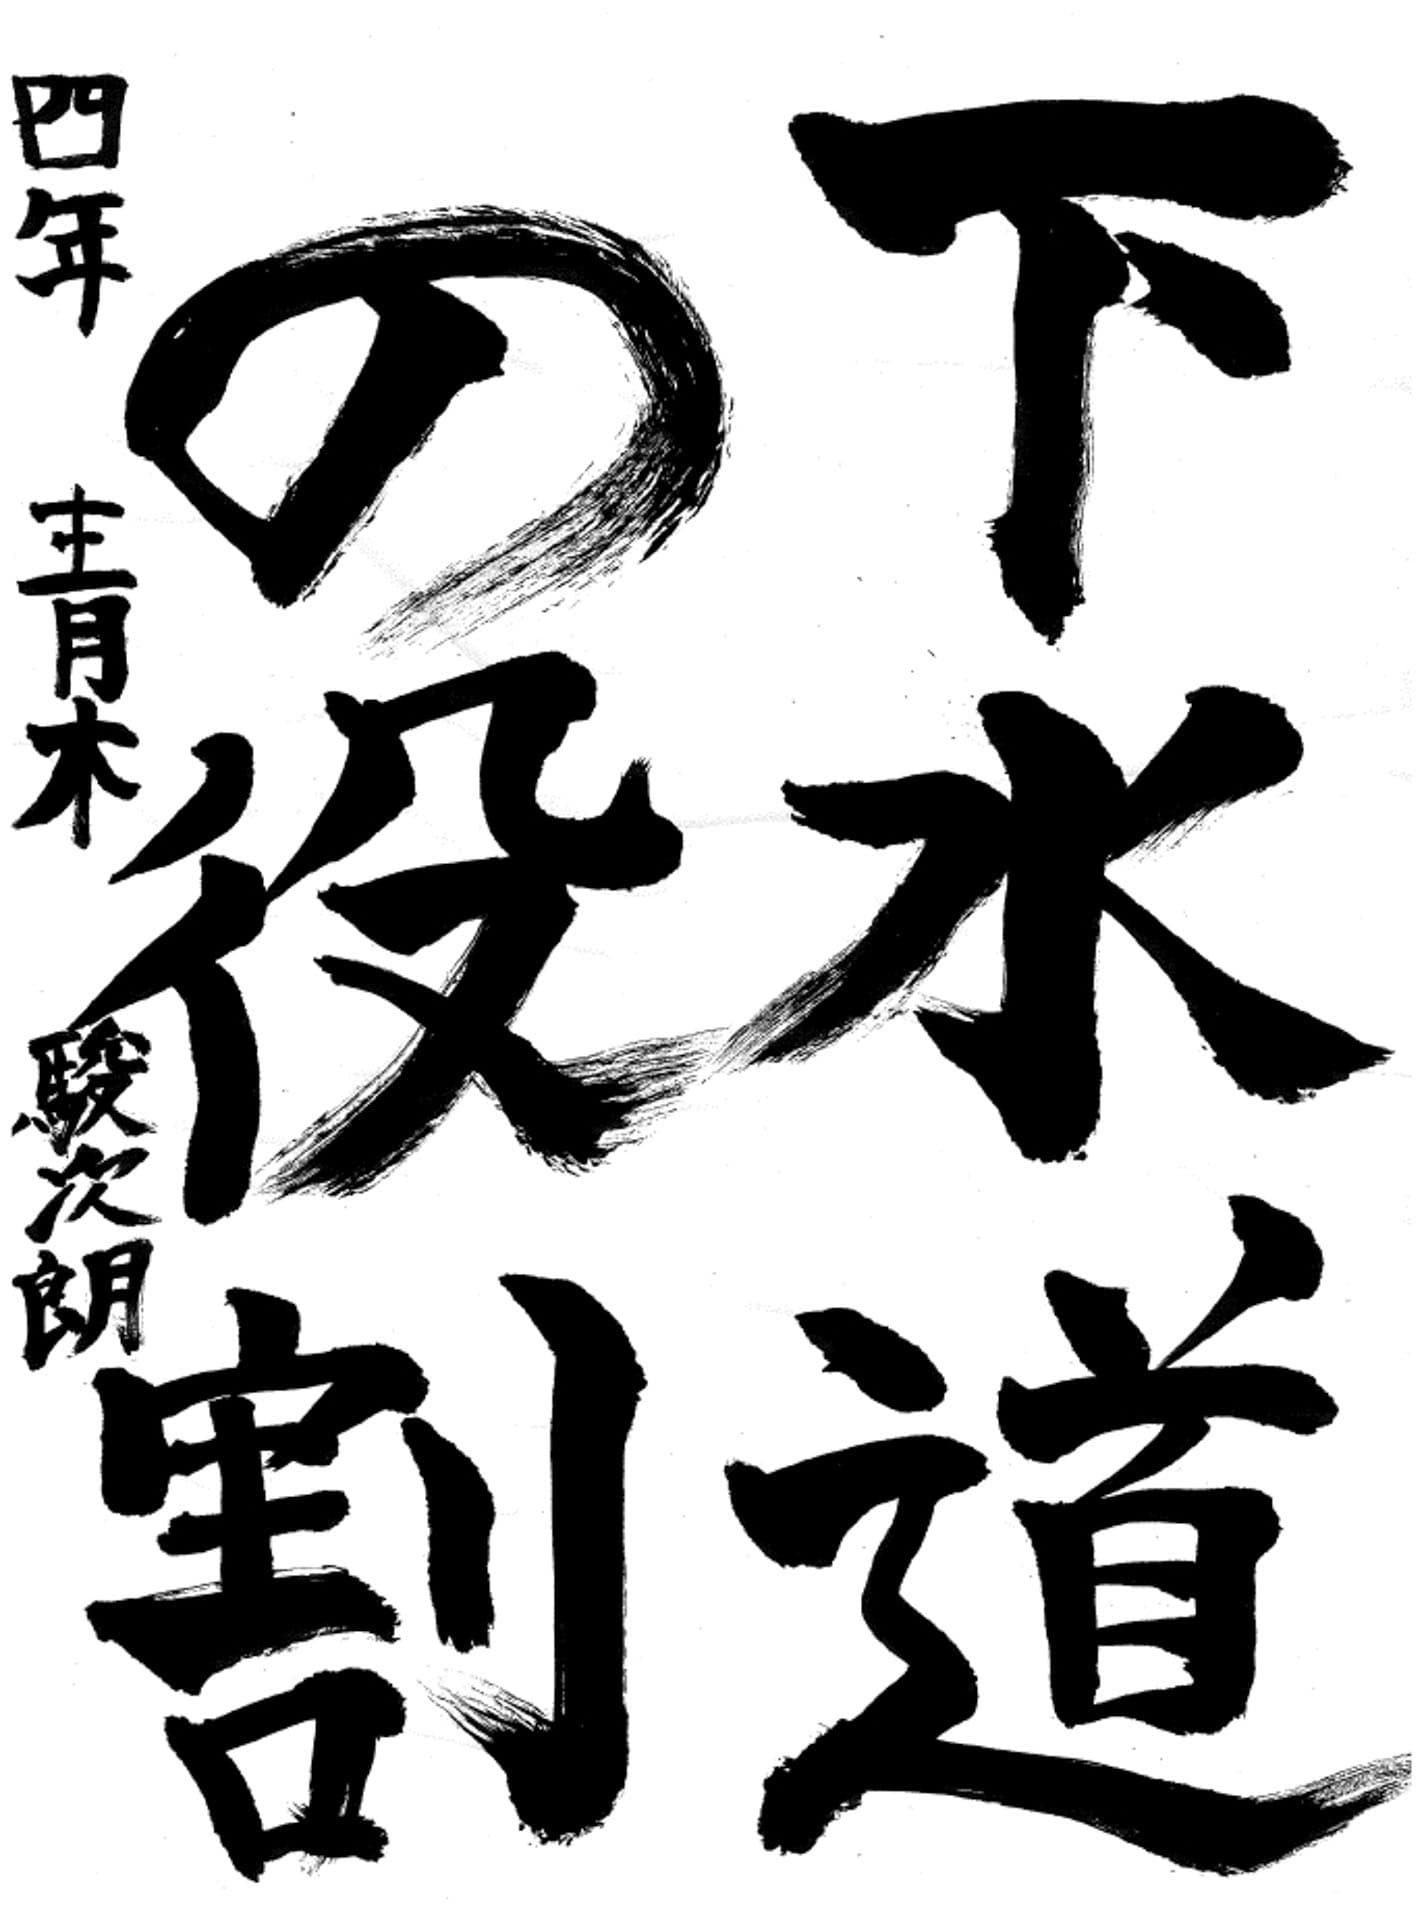 下水道
の役割
四年 青木 駿次朗